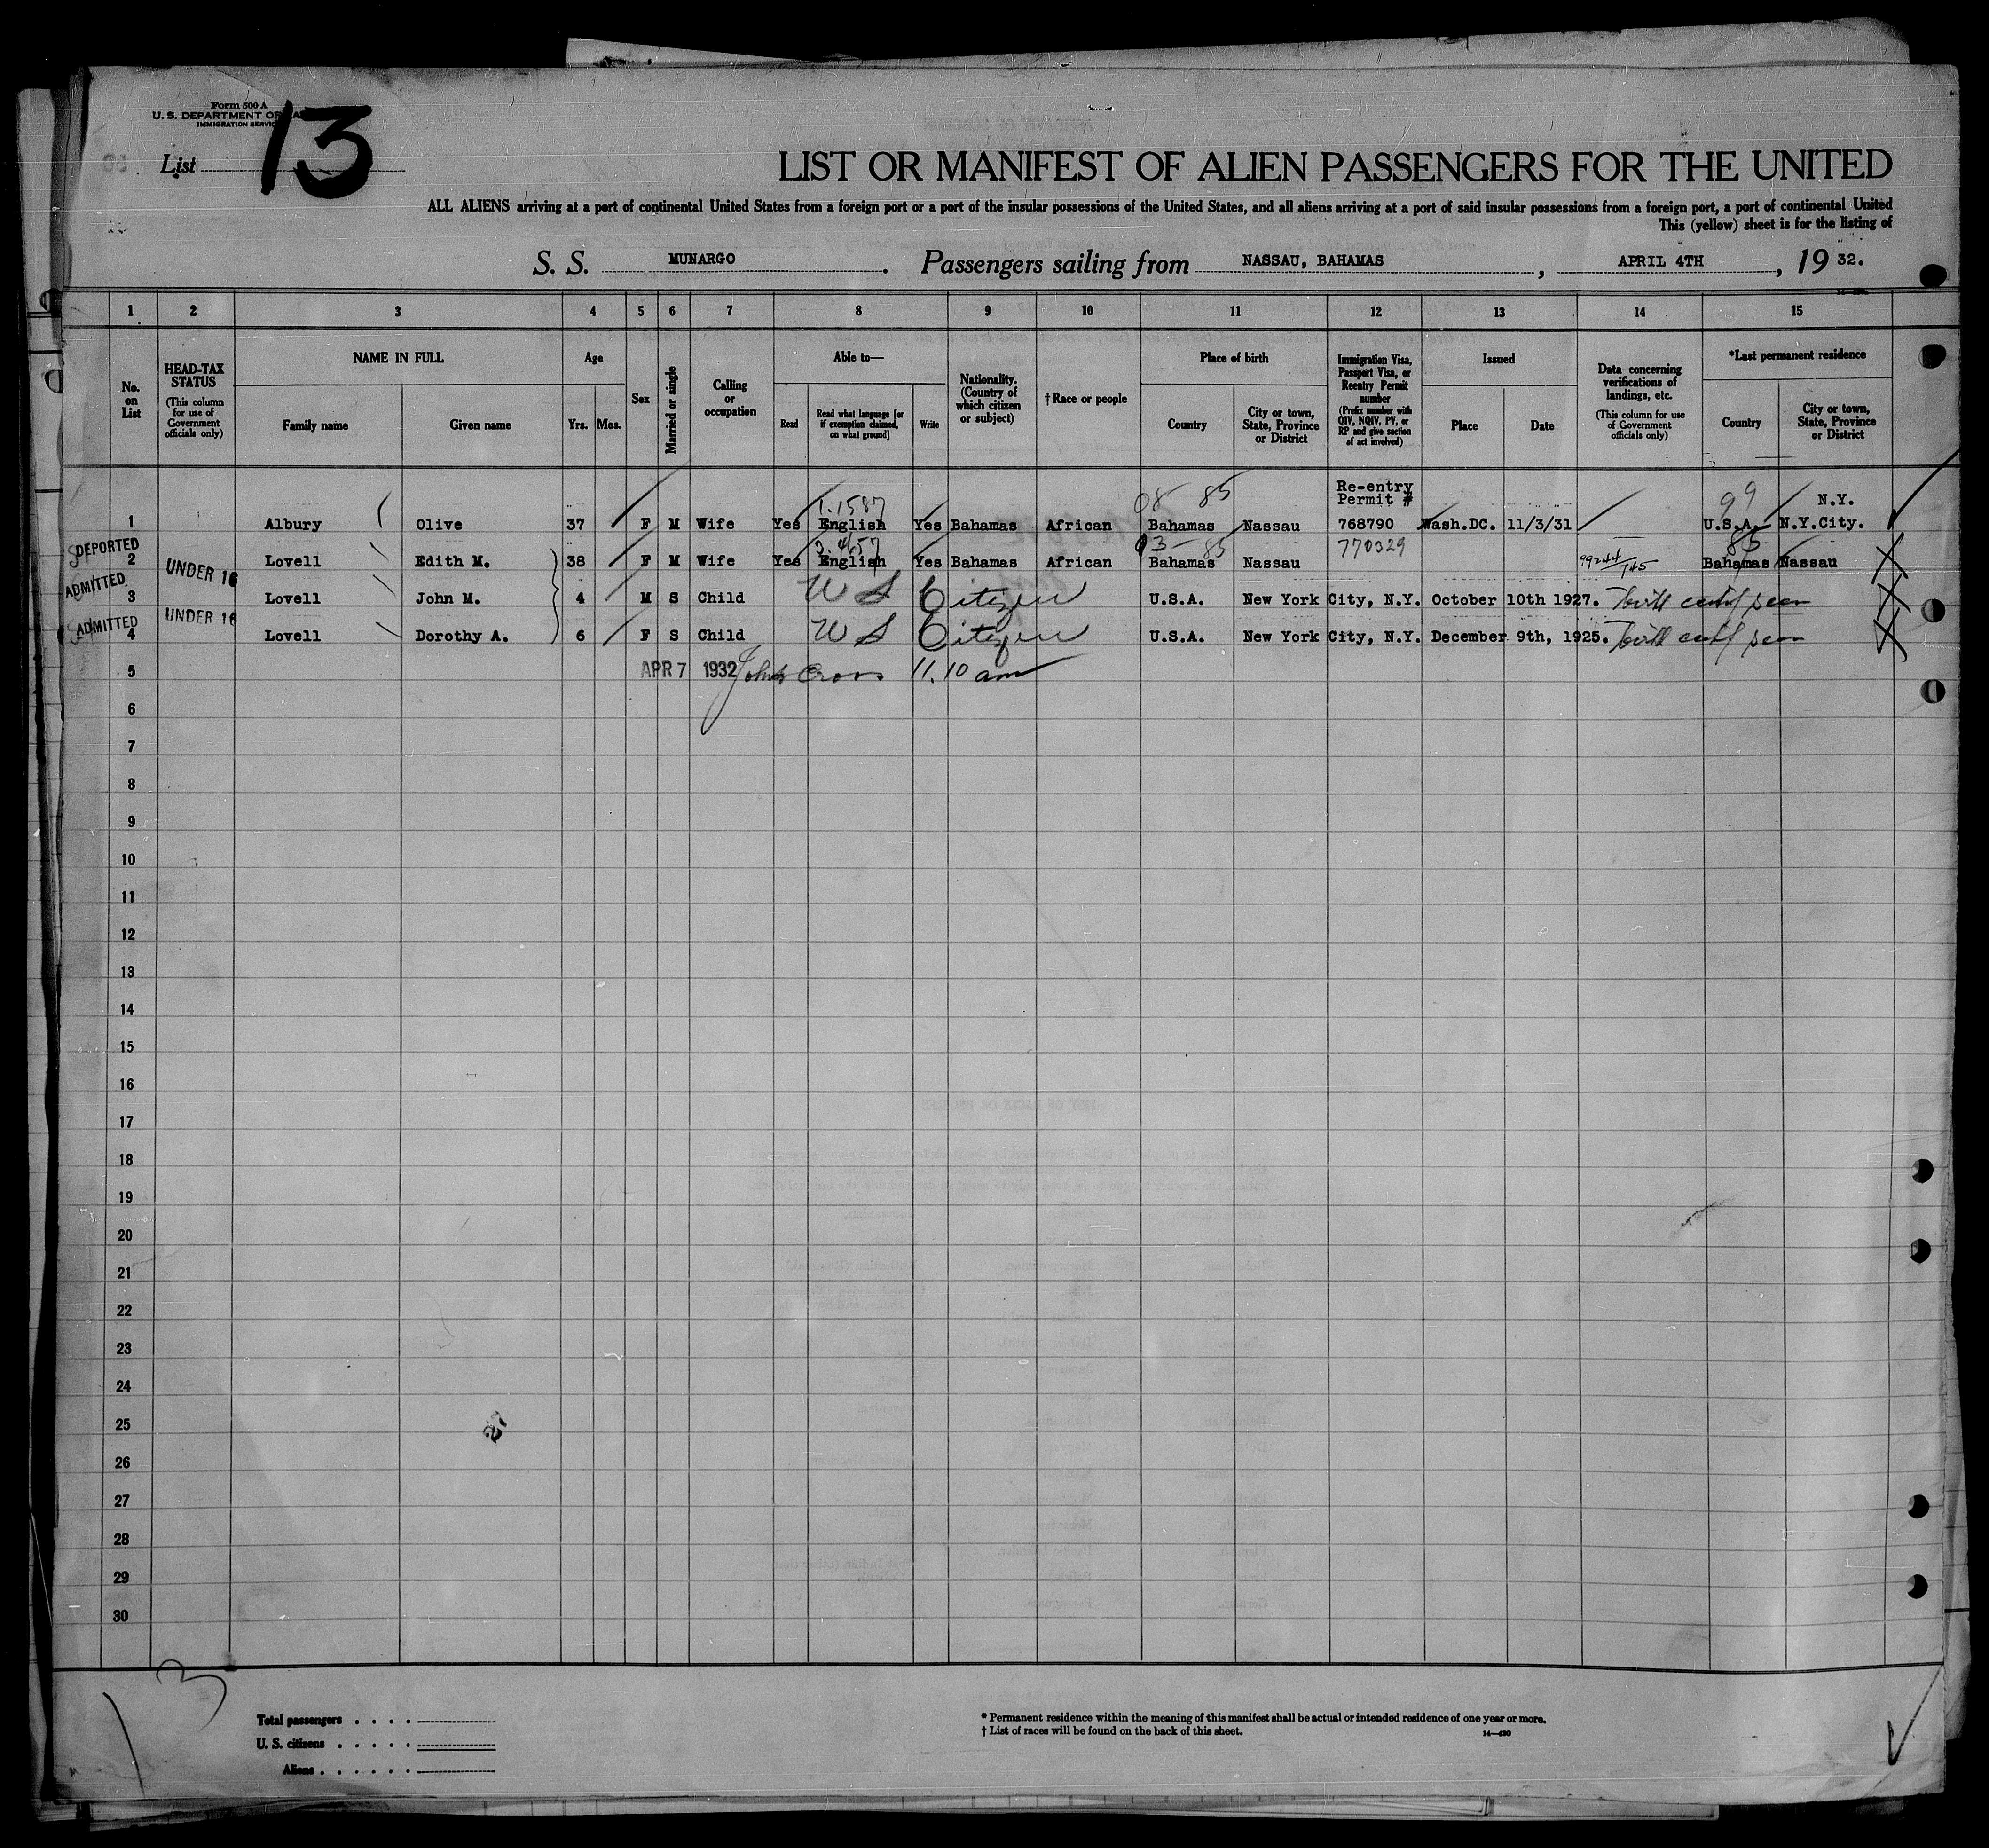 Form 500 A
U. S. DEPARTMENT OF LA
IMMIGRATION SERVIC
List 13
LIST OR MANIFEST OF ALIEN PASSENGERS FOR THE UNITED
ALL ALIENS arriving at a port of continental United States from a foreign port or a port of the insular possessions of the United States, and all aliens arriving at a port of said insular possessions from a foreign port, a port of continental United
This (yellow) sheet is for the listing of
S. S. MUNARGO. Passengers sailing from NASSAU, BAHAMAS, APRIL 4TH, 19 32.
1 2 3 4 5 6 7 8 9 10 11 12 13 14 15
No. on List
HEAD-TAX STATUS
(This column for use of Government officials only)
NAME IN FULL
Family name Given name
Age
Yrs. Mos.
Sex
Married or single
Calling or occupation
Able to—
Read
Read what language [or if exemption claimed, on what ground]
Write
Nationality. (Country of which citizen or subject)
†Race or people
Place of birth
Country
City or town, State, Province or District
Immigration Visa, Passport Visa, or Reentry Permit number
(Prefix number with QIV, NQIV, PV, or RP and give section of act involved)
Issued
Place Date
Data concerning verifications of landings, etc.
(This column for use of Government officials only)
*Last permanent residence
Country
City or town, State, Province or District
1.1587 08 85 Re-entry Permit # 99 N.Y.
1 Albury Olive 37 F M Wife Yes English Yes Bahamas African Bahamas Nassau 768790 Wash.DC. 11/3/31 U.S.A. N.Y.City.
DEPORTED 03- 85 770329 85
2 Lovell Edith M. 38 F M Wife Yes English Yes Bahamas African Bahamas Nassau Bahamas Nassau
ADMITTED UNDER 16
3 Lovell John M. 4 M S Child U S Citizen U.S.A. New York City, N.Y. October 10th 1927. seen
ADMITTED UNDER 16
4 Lovell Dorothy A. 6 F S Child U S Citizen U.S.A. New York City, N.Y. December 9th, 1925. seen
5 APR 7 1932 11.10 am
6
7
8
9
10
11
12
13
14
15
16
17
18
19
20
21
22
23
24
25
27
26
27
28
29
30
3
Total passengers
U. S. citizens
Aliens
* Permanent residence within the meaning of this manifest shall be actual or intended residence of one year or more.
† List of races will be found on the back of this sheet.
14—430